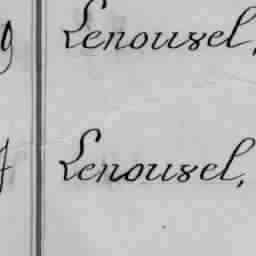 Lenousel,
Lenousel,